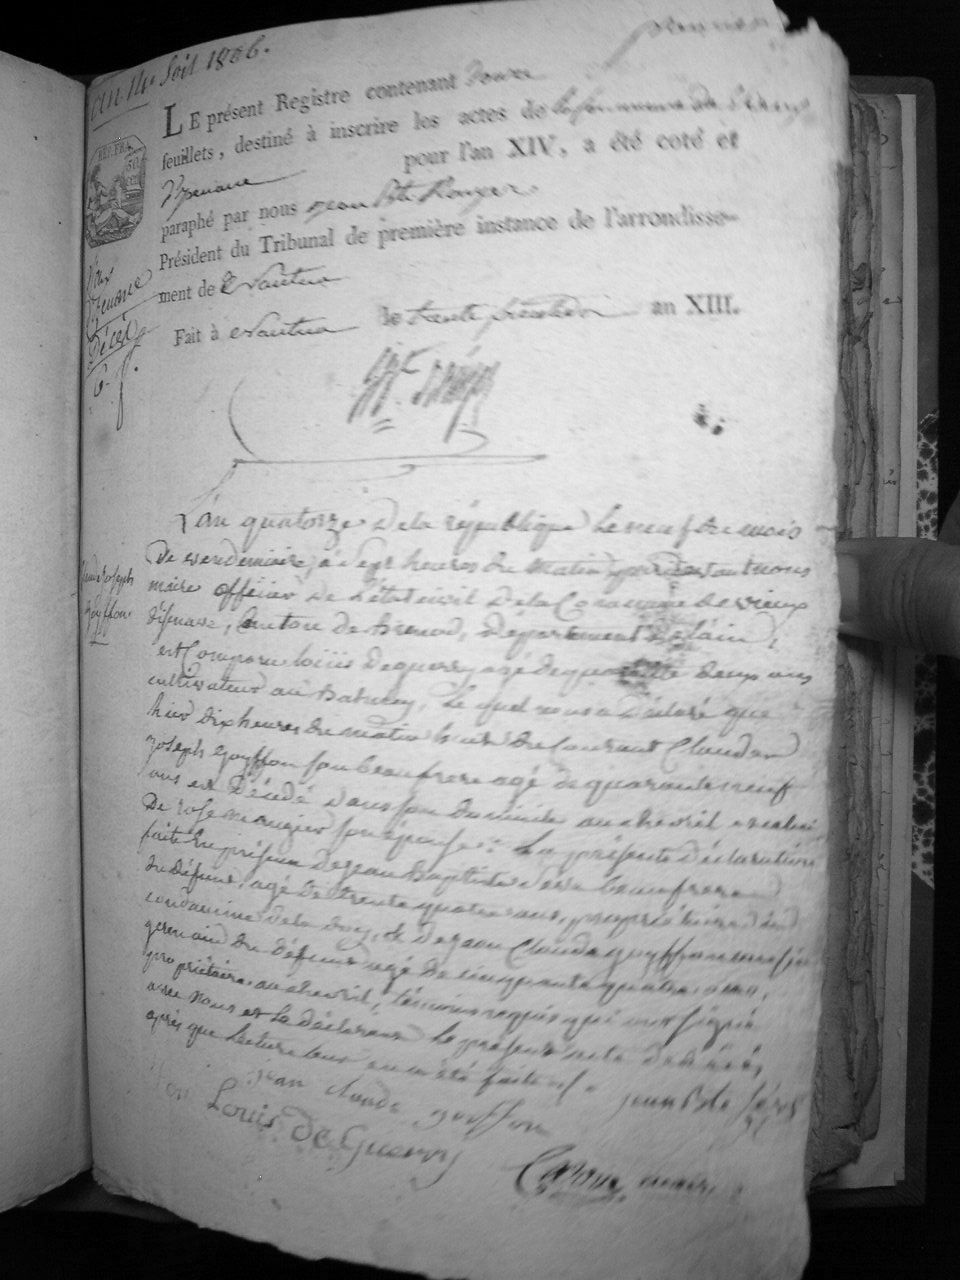 an 14 Soit 1806.
premier
LE présent Registre contenant douze
feuillets, destiné à inscrire les actes de la commune de Vieux
d'Izenave pour l'an XIV, a été coté et
REP. FRA.
paraphé par nous jean Bte Rouyer
Président du Tribunal de première instance de l'arrondisse-
ment de Nantua
vieux
Izenave
Décès
Fait à Nantua le trente fructidor an XIII.
L'an quatorze De la république le neuf du mois
De vendemiaire, à Sept heures du matin, pardevant nous
maire officier De l'état civil De la Commune de vieux
Claude Joseph
Goyffon
d'isenave, Canton de Brenod, Département de l'ain,
est Comparu loüis Deguerry agé de quarante Deux ans
cultivateur au Balmey, Le quel nous a Déclaré que
hier dix heures du matin huit du Courant Claude
Joseph Goyffon son beaufrere agé de quarante neuf
ans est Décédé Dans son domicile au chevril
De rose mougier son epouse. La présente Déclaration
faite En présence De jean Baptiste beaufrere
du défunt, agé De trente quatre ans, propriétaire
De la Doy, & De jean Claude goyffon cousin
germain du défunt agé de cinquante quatre ans,
propriétaire au chevril, témoins requis qui ont signé
avec nous et le déclarant Le présent acte De décès,
après que lecture leur en a été faite
jean claude goiffon jean Bte
Louis De Guerry
maire